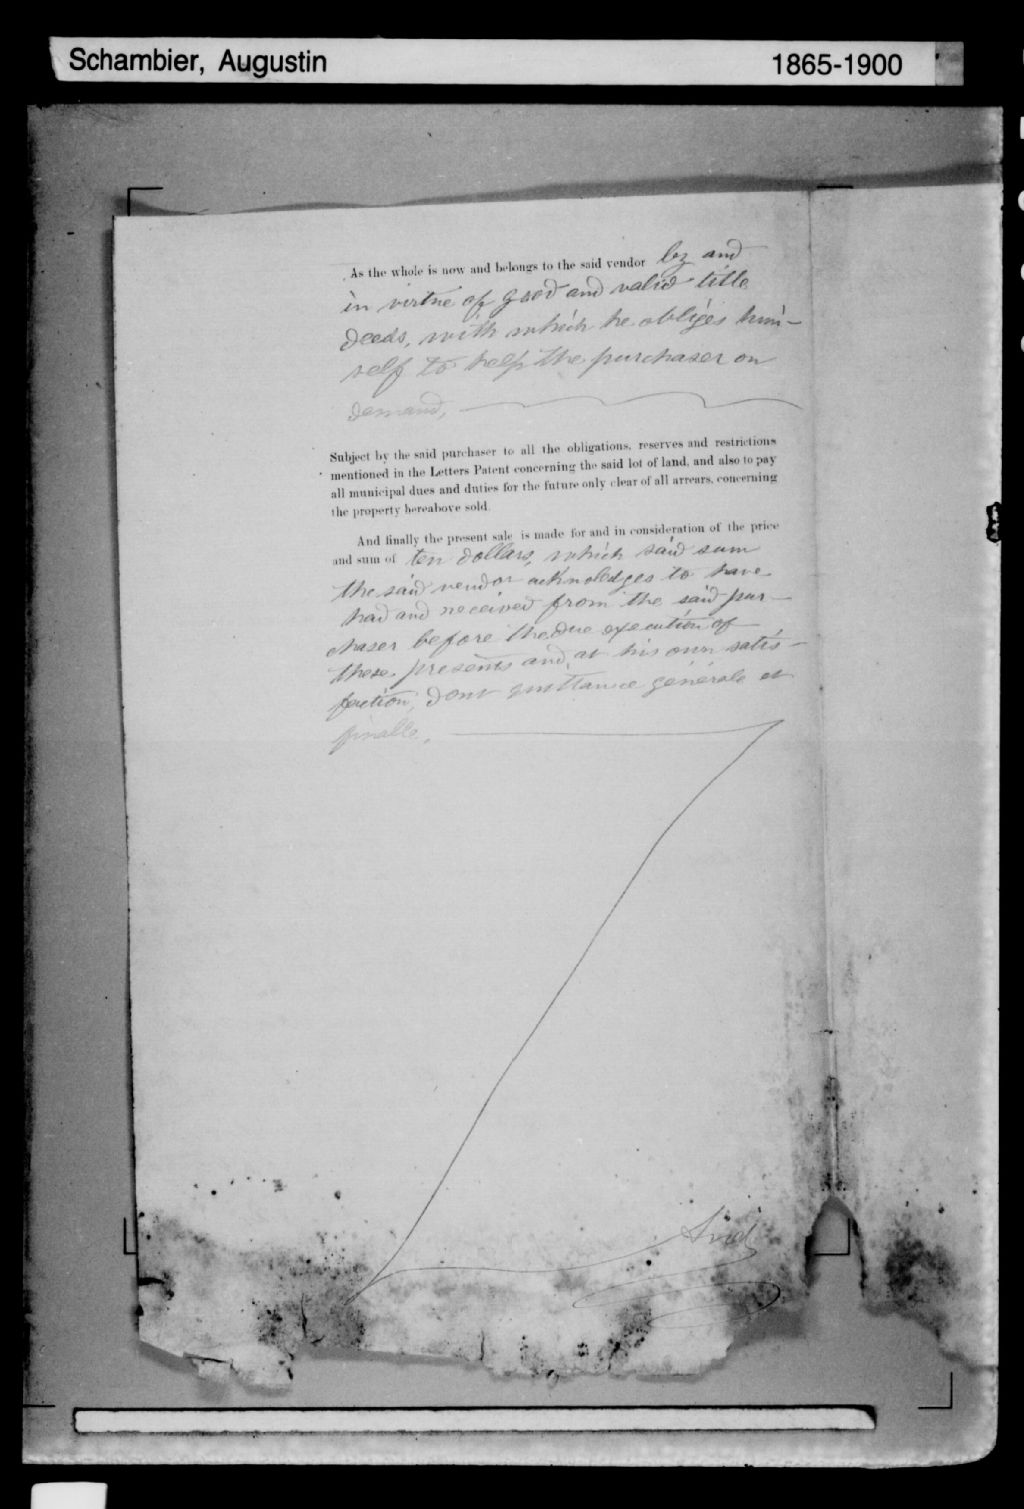 Schambier, Augustin 1865-1900
As the whole is now and belongs to the said vendor by and
in virtue of good and valid title
deeds, with which he obliges him-
self to help the purchaser on
demand,
Subject by the said purchaser to all the obligations, reserves and restrictions
mentioned in the Letters Patent concerning the said lot of land, and also to pay
all municipal dues and duties for the future only clear of all arrears, concerning
the property hereabove sold.
And finally the present sale is made for and in consideration of the price
and sum of ten dollars, which said sum
the said vendor acknoledges to have
had and received from the said pur-
chaser before the due execution of
these presents and, at his own satis-
faction, dont quittance générale et
finalle.